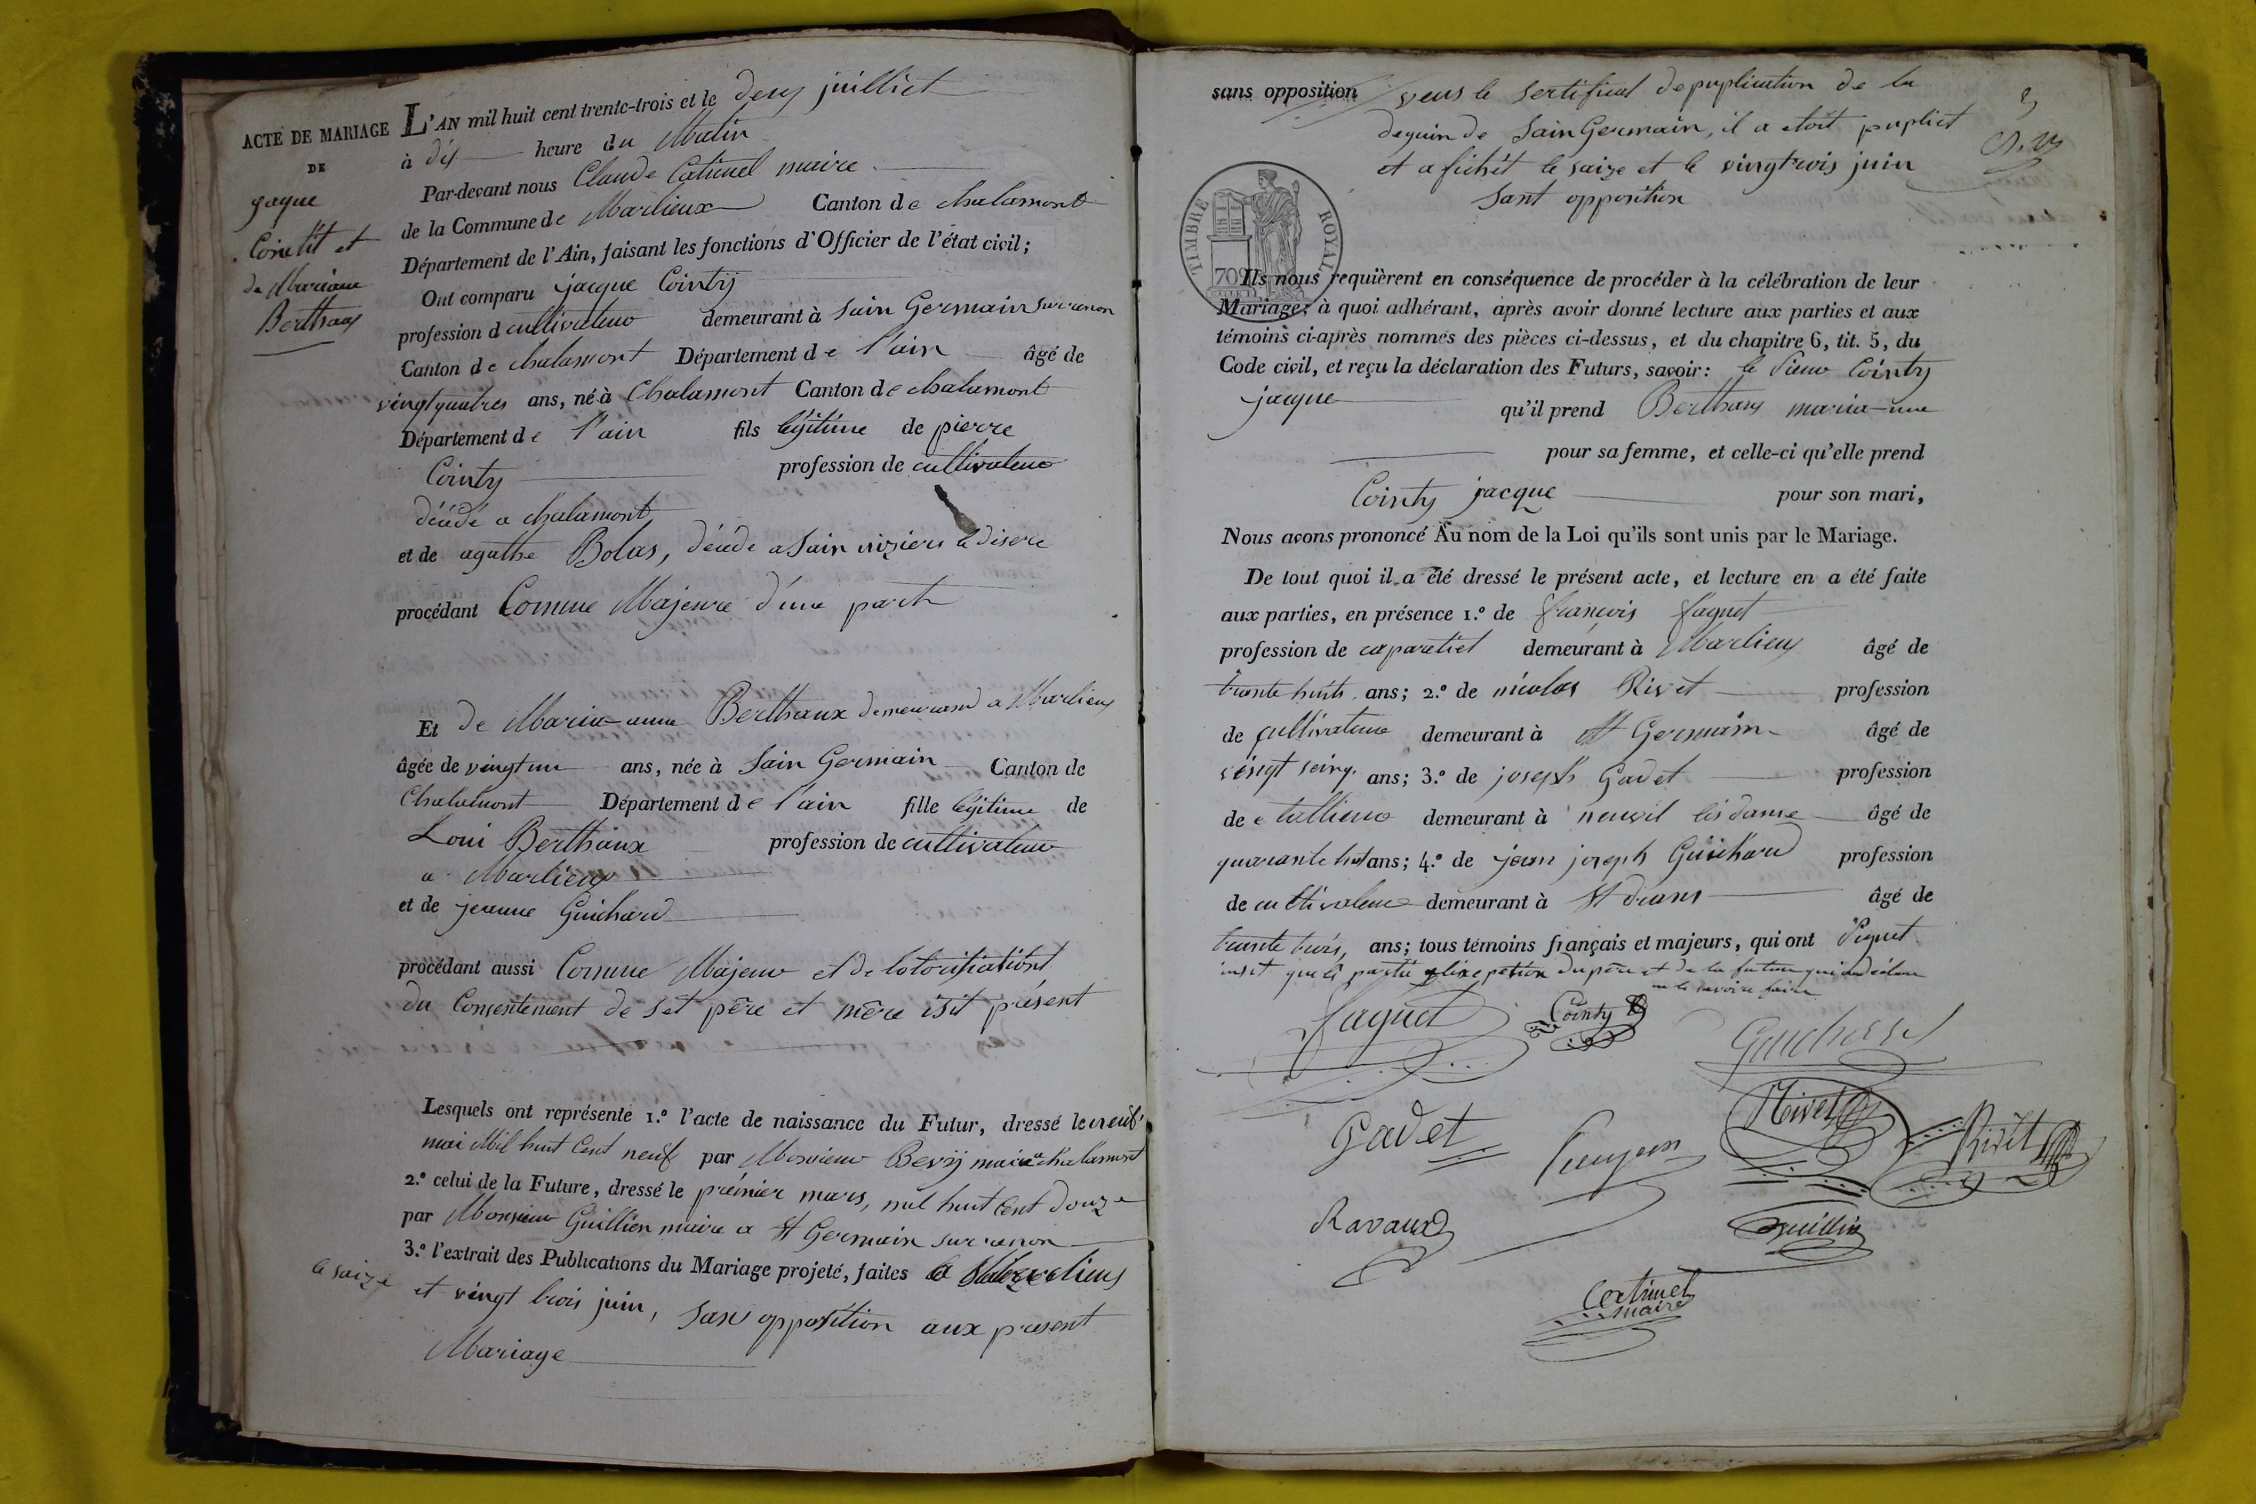 ACTE DE MARIAGE
DE
jaque
Cointit et
de Mariane
Berthaux
L'AN mil huit cent trente-trois et le deux juilliet
à dix heure du Matin
Par-devant nous Claude Catimel maire
de la Commune de Marlieux Canton de chalamont
Département de l'Ain, faisant les fonctions d'Officier de l'état civil;
Ont comparu jacque Cointy
profession d cultivateur demeurant à Sain Germain sur renon
Canton de chalamont Département de l'ain âgé de
vingtquatres ans, né à Chalamont Canton de chalamont
Département de l'ain fils légitime de pierre
Cointy profession de cultivateur
décédé a chalamont
et de agathe Bolas, décédé a Sain
procédant Comme Majeure d'une part
Et de Maria-anne Berthaux demeurand a Marlieux
âgée de vingt un ans, née à Sain Germain Canton de
Chalamont Département de l'ain fille légitime de
Loui Berthaux profession de cultivateur
a Marlieux
et de jeanne Guichard
procédant aussi Comme Majeur et de
du Consentement de set père et mère isit présent
Lesquels ont représenté 1.º l'acte de naissance du Futur, dressé le neuf
mai Mil huit Cent neuf par Monsieur maire a chalamont
2.º celui de la Future, dressé le prémier mars, mil huit Cent douze
par Monsieur Guillien maire a St Germain sur renon
3.º l'extrait des Publications du Mariage projeté, faites a
le saize et vingt trois juin, sans opposition aux présent
Mariage
sans opposition veus le Sertificat de puplication de la
de Sain Germain, il a etoit pupliet
et a fichét le saize et le vingtrois juin
Sant opposition
TIMBRE ROYAL
709
Ils nous requièrent en conséquence de procéder à la célébration de leur
Mariage; à quoi adhérant, après avoir donné lecture aux parties et aux
témoins ci-après nommés des pièces ci-dessus, et du chapitre 6, tit. 5, du
Code civil, et reçu la déclaration des Futurs, savoir: le Sieur Cointy
jacque qu'il prend Berthaux maria-nne
pour sa femme, et celle-ci qu'elle prend
Cointy jacque pour son mari,
Nous avons prononcé Au nom de la Loi qu'ils sont unis par le Mariage.
De tout quoi il a été dressé le présent acte, et lecture en a été faite
aux parties, en présence 1.º de françois faguet
profession de demeurant à Marlieux âgé de
trante huit ans; 2.º de nicolas Rivet profession
de cultivateur demeurant à St Germain âgé de
vingt ans; 3.º de joseph Gadet profession
de tallieur demeurant à neuvil les dame âgé de
quarante huit ans; 4.º de jean joseph Guichard profession
de cultivateur demeurant à St âgé de
trante trois, ans; tous témoins français et majeurs, qui ont Signet
du père et de la future qui
ne le savoire faire
faguet
Cointy
Guichard
Gadet
Rivet
Rivet
Ravaux
Guillin
Catimel
maire